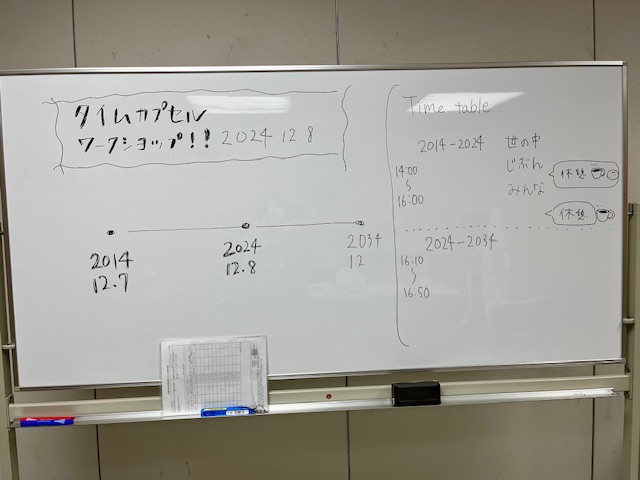 タイムカプセル
ワークショップ!! 2024 12 8
2014
12.7
2024
12.8
2034
12
Time table
2014-2024 世の中
じぶん
みんな
14:00
~
16:00
休憩
休憩
2024-2034
16:10
~
16:50